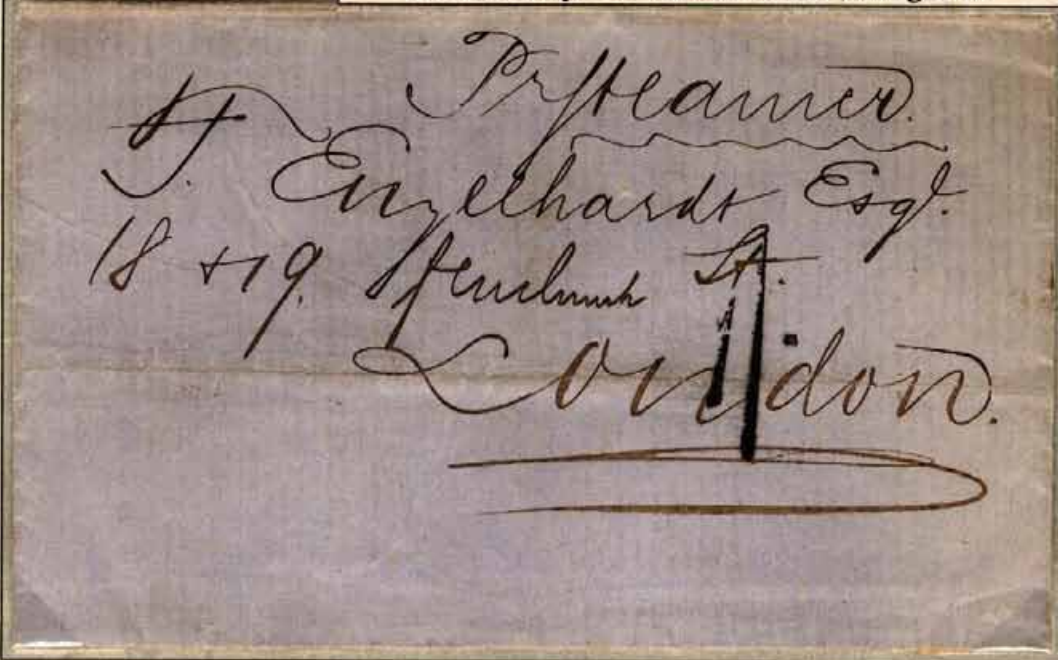 Pr Steamer.
F. Engelhardt Esqr.
18 & 19. Fenchurch St.
London.